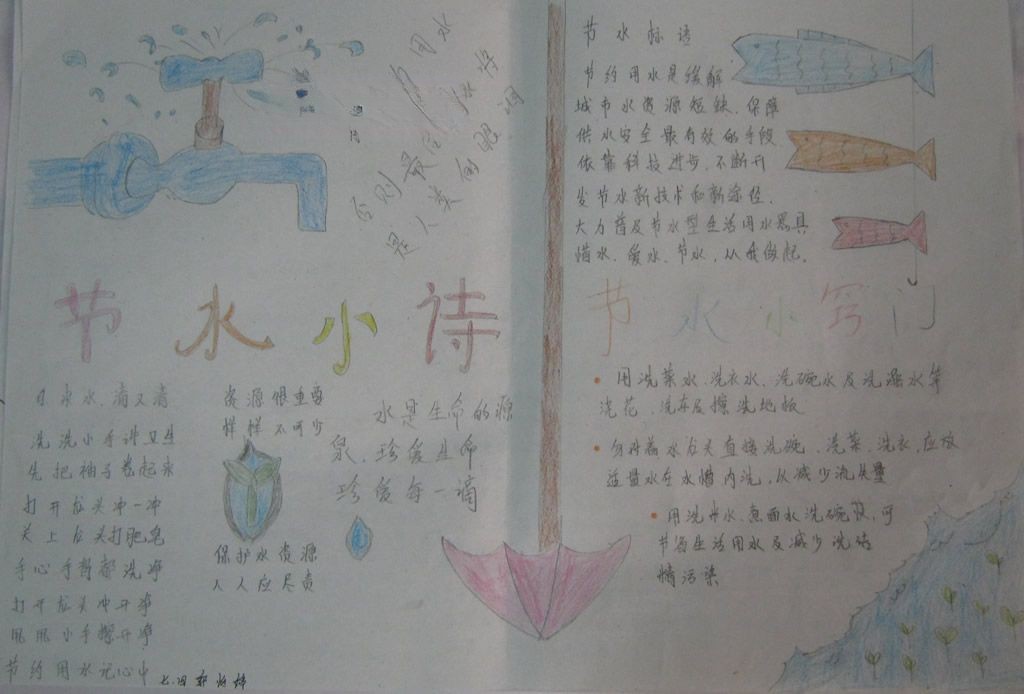 用水
否则最后
是人类的眼泪
节水小诗
洗洗小手讲卫生
先把袖子卷起来
打开龙头冲一冲
关上龙头打肥皂
手心手背都洗净
打开龙头冲干净
甩甩小手擦干净
节约用水记心中
资源很重要
样样不可少
保护水资源
人人应尽责
水是生命的源
泉，珍爱生命
珍爱每一滴
节水标语
节约用水是缓解
城市水资源短缺、保障
供水安全最有效的手段
依靠科技进步，不断开
发节水新技术和新途径，
大力普及节水型生活用水器具
惜水、爱水、节水，从我做起。
节水小窍门
用洗菜水、洗衣水、洗碗水及洗澡水等
浇花、洗车及擦洗地板
勿对着水龙头直接洗碗、洗菜、洗衣，应放
适量水在水槽内洗，以减少流失量
用洗米水、煮面水洗碗筷，可
节省生活用水及减少洗洁
精污染